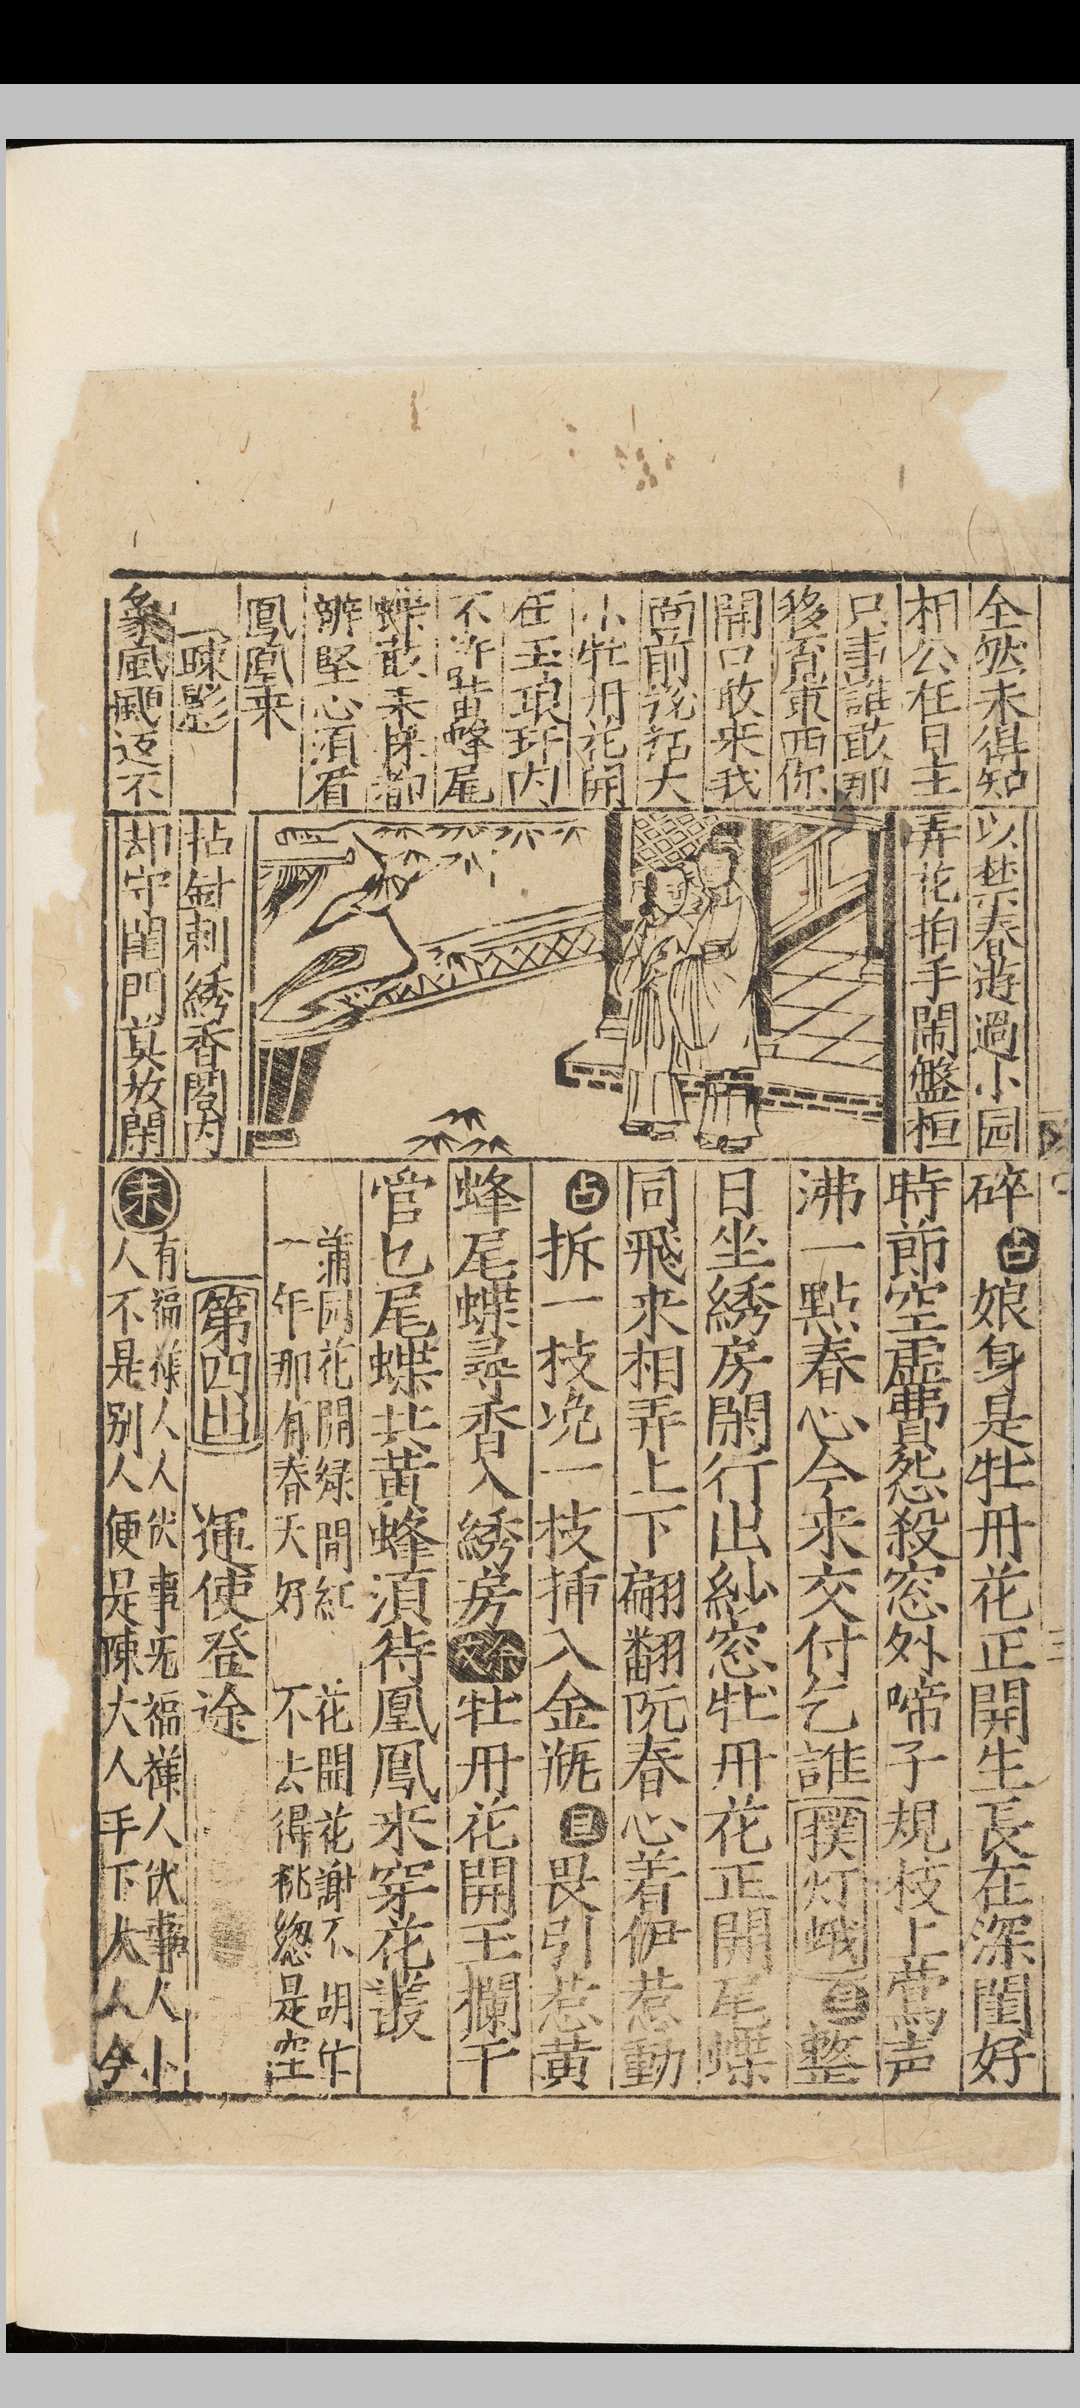 全然未得知
相公在日主
只事誰敢那
移育東西你
開口敢來我
面前説話大
小牡丹花開
在玉琅玕内
不許黄蜂尾
蝶敢来採都
辦堅心須看
鳳凰来
疎影
象風飈返不
以禁春遊過小园
弄花拍手鬧盤桓
拈針刺綉香閣内
却守閨門莫放閑
碎占娘身是牡丹花正開生長在深閨好
時節空虛費怨殺窓外啼子規枝上鶯声
沸一點春心今来交付乞誰撲灯蛾旦整
日坐綉房閑行出紗窓牡丹花正開尾蝶
同飛来相弄上下翩翻阮春心着伊惹動
占折一枝挽一枝揷入金瓶旦畏引惹黄
蜂尾蝶尋香入綉房餘文牡丹花開玉欄干
官乜尾蝶共黄蜂湏待凰鳳来穿花叢
蒲园花開緑間紅 花開花謝不胡忙
一年那有春天好 不去得桃総是空
第四出 運使登途
末有福樣人人伏事旡福樣人伏事人小
人不是别人便是陳大人手下大人今